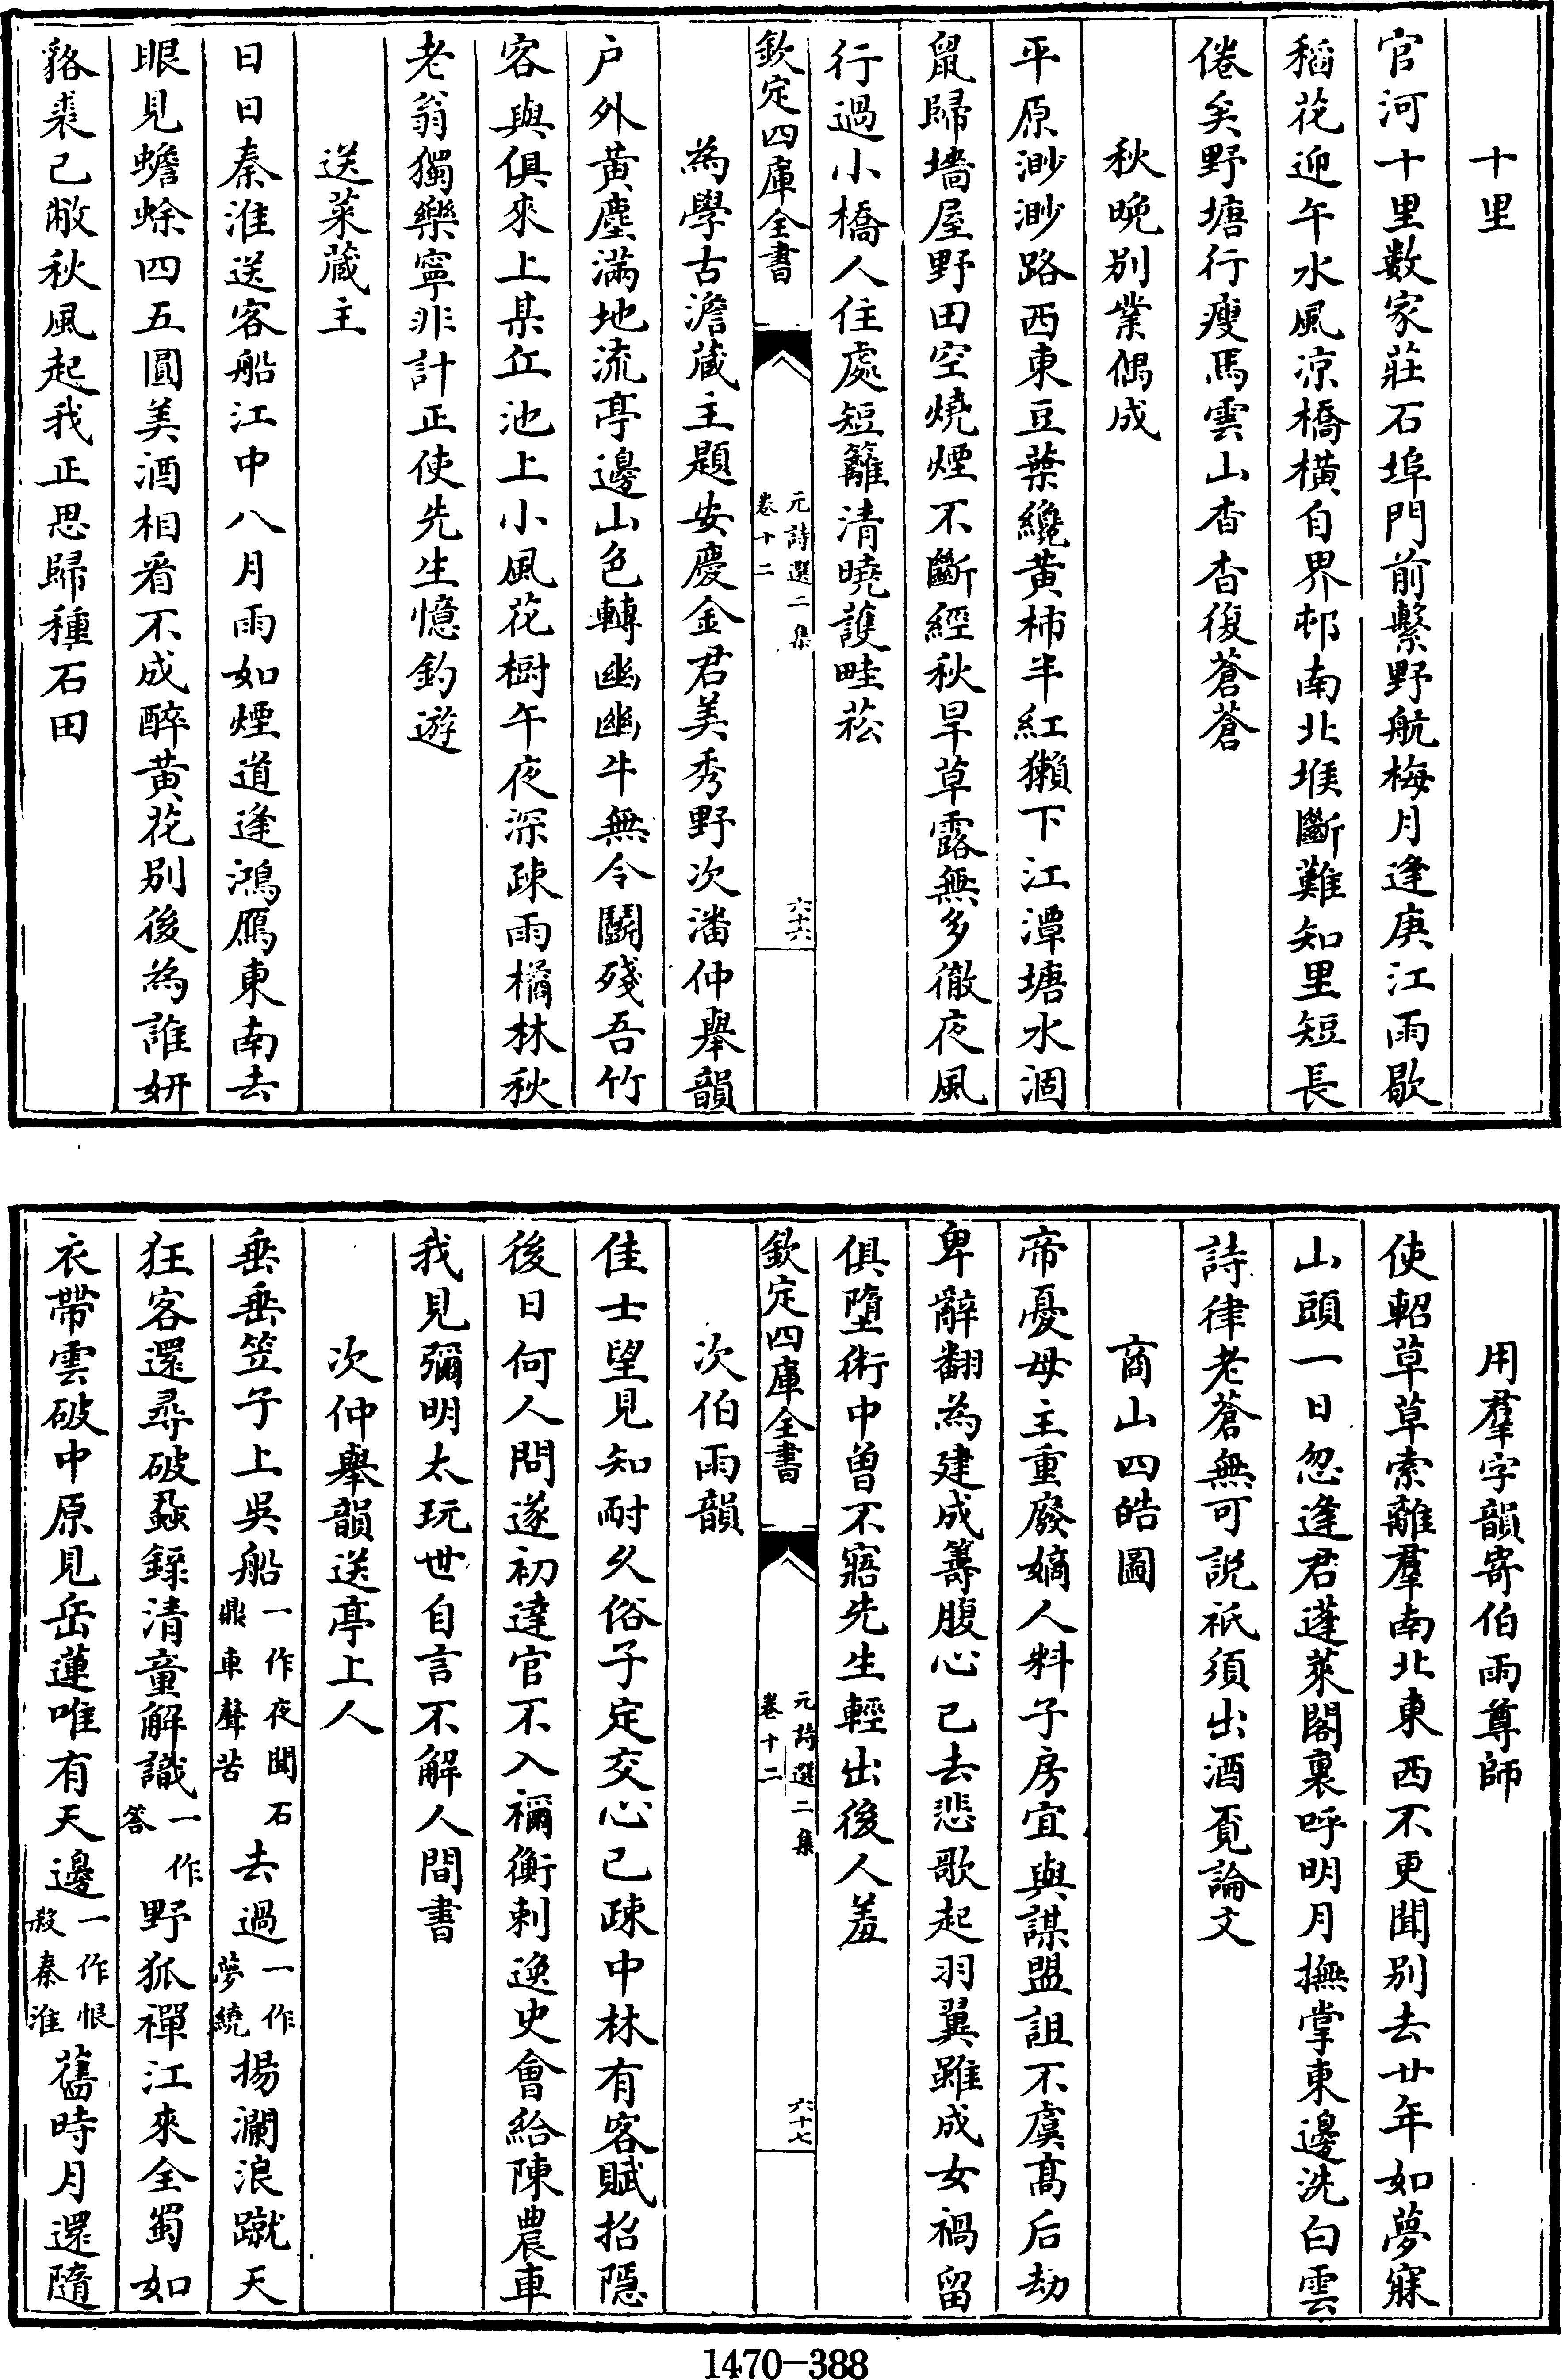 十里
官河十里數家莊石埠門前繫野航梅月逢庚江雨歇
稻花迎午水風凉橋橫自界邨南北堠斷難知里短長
倦矣野塘行瘦馬雲山杳杳復蒼蒼
秋晚别業偶成
平原渺渺路西東豆葉纔黃柿半紅獺下江潭塘水涸
鼠歸墻屋野田空燒煙不斷經秋旱草露無多徹夜風
行過小橋人住處短籬清曉護畦菘
欽定四庫全書
元詩選二集
卷十二
六十六
為學古澹蔵主題安慶金君美秀野次潘仲舉韻
户外黃塵滿地流亭邊山色轉幽幽牛無令鬭殘吾竹
客與俱來上某丘池上小風花樹午夜深疎雨橘林秋
老翁獨樂寧非計正使先生憶釣遊
送莱蔵主
日日秦淮送客船江中八月雨如煙道逢鴻鴈東南去
眼見蟾蜍四五圓美酒相看不成醉黃花别後為誰妍
貉裘已敝秋風起我正思歸種石田
用羣字韻寄伯雨尊師
使軺草草索離羣南北東西不更聞别去廿年如夢寐
山頭一日忽逢君蓬萊閣裏呼明月撫掌東邊洗白雲
詩律老蒼無可説祇須出酒覔論文
商山四皓圖
帝憂母主重廢嫡人料子房宜與謀盟詛不虞髙后劫
卑辭翻為建成籌腹心已去悲歌起羽翼雖成女禍留
俱墮術中曾不寤先生輕出後人羞
欽定四庫全書
元詩選二集
卷十二
六十七
次伯雨韻
佳士望見知耐久俗子定交心已疎中林有客賦招隱
後日何人問遂初達官不入禰衡刺逸史會給陳農車
我見彌明太玩世自言不解人間書
次仲舉韻送亭上人
垂垂笠子上吳船一作夜聞石鼎車聲苦去過一作夢繞揚瀾浪蹴天
狂客還尋破蝨錄清童解識一作答野狐禪江來全蜀如
衣帶雲破中原見岳蓮唯有天邊一作恨殺秦淮舊時月還隨
1470-388